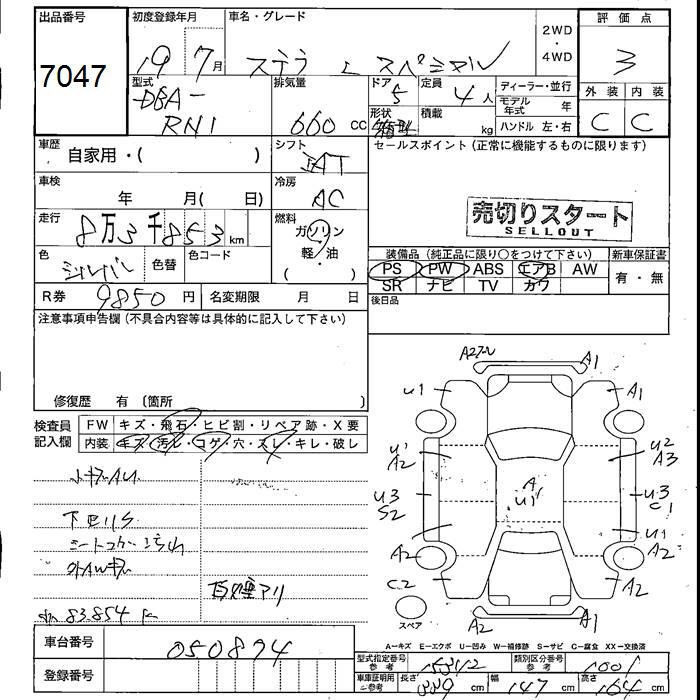 出品番号
7047
初度登録年月
19 7月
車名・グレード
ステラ L スペシャル
2WD
・
4WD
評価点
3
外装 内装
C C
型式
DBA-
RN1
排気量
660 cc
ドア
5
形状
箱型
定員
4人
積載
kg
ディーラー・並行
モデル年式 年
ハンドル 左・右
車歴
自家用・( )
シフト
AT
セールスポイント(正常に機能するものに限ります)
車検
年 月( 日)
冷房
AC
売切りスタート
SELLOUT
走行
8万3千853km
燃料
ガソリン
・
軽/油
色
シルバー
色替
色コード
装備品(純正品に限り○をつけて下さい)
PS PW ABS エアB AW
SR ナビ TV カワ
新車保証書
有・無
R券 9850円
名変期限 月 日
後日品
注意事項申告欄(不具合内容等は具体的に記入して下さい)
修復歴 有(箇所
検査員
記入欄
FW キズ・飛石・ヒビ割・リペア跡・X要
内装 キズ・汚レ・コゲ・穴・スレ・キレ・破レ
下回りS
83.854 k
A1
U1 A1
U1
A2
U2
A3
A
U1
U3
S2
U3
C1
A2
U1
A2
C2 A2
A2 A1
スペア
A-キズ E-エクボ U-凹み W-補修跡 S-サビ C-腐食 XX-交換済
車台番号
050894
登録番号
型式指定番号
参考
15342
類別区分番号
参考
1001
車庫証明用
参考
長さ 339cm
幅 147cm
高さ 164cm